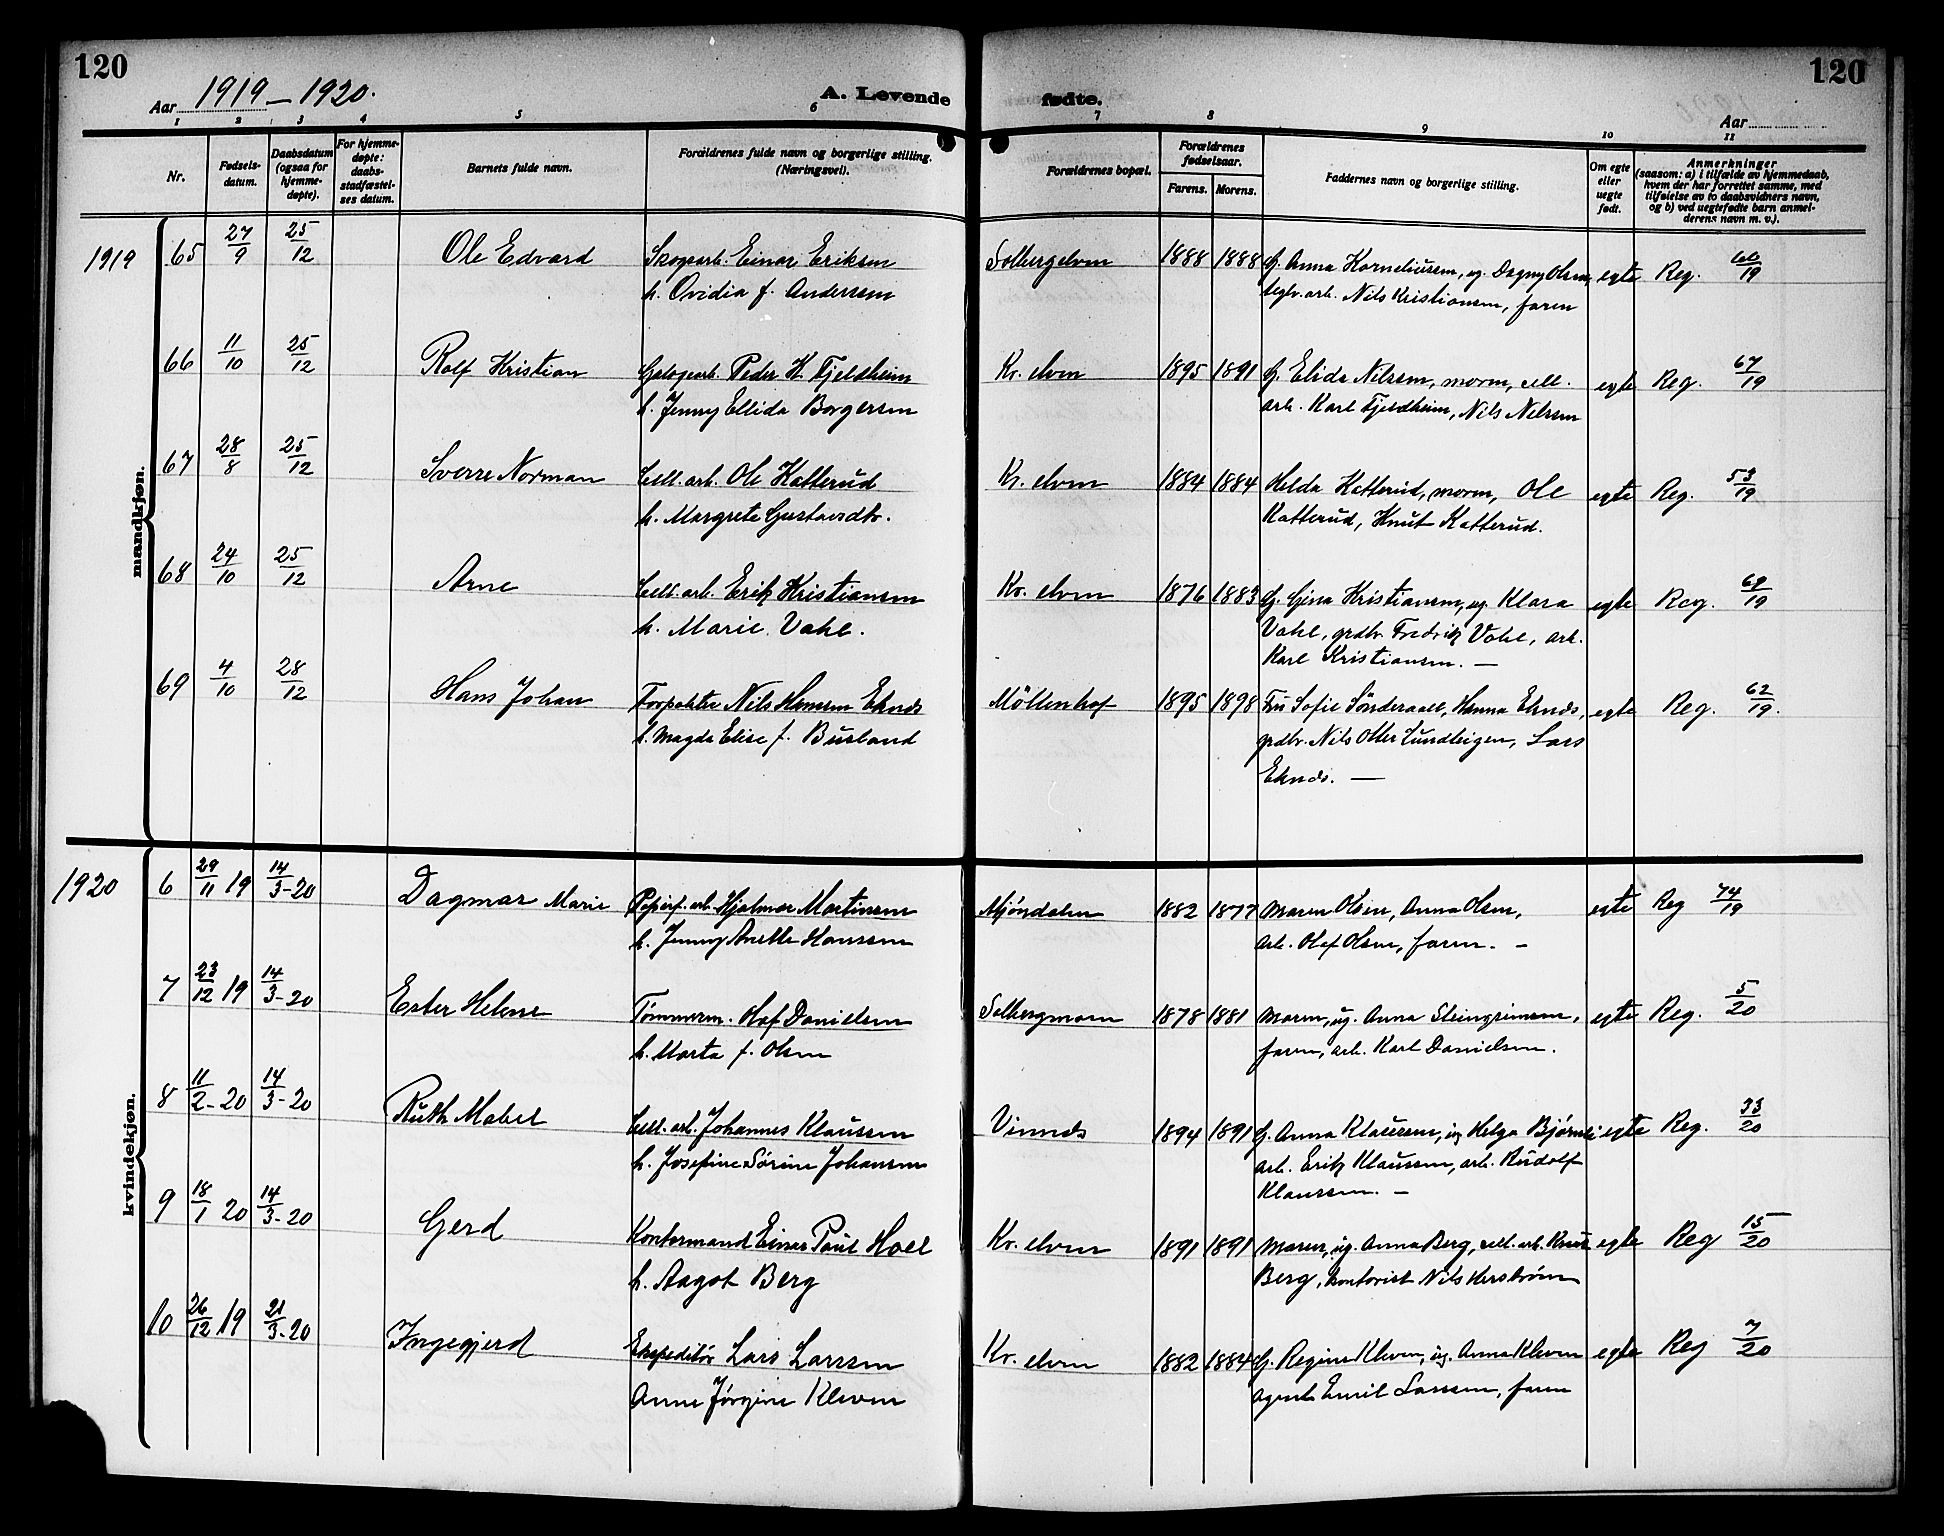 120
120
Aar 1919 – 1920.
A. Levende
fødte.
Aar
1 2 3 4 5 6 7 8 9 10 11
Nr.
Fødsels-
datum.
Daabsdatum
(ogsaa for
hjemme-
døpte).
For hjemme-
døpte:
daabs-
stadfæstel-
ses datum.
Barnets fulde navn.
Forældrenes fulde navn og borgerlige stilling.
(Næringsvei).
Forældrenes bopæl.
Forældrenes
fødselsaar.
Farens. Morens.
Faddernes navn og borgerlige stilling.
Om egte
eller
uegte
født.
Anmerkninger
(saasom: a) i tilfælde av hjemmedaab,
hvem der har forrettet samme, med
tilføielse av to daabsvidners navn,
og b) ved uegtefødte barn anmel-
derens navn m. v.).
mandkjøn.
1919 65 27/9 25/12 Ole Edvard Skogarb. Einar Eriksen Solbergelven 1888 1888 G. Anna Korneliussen, ug. Dagny Olsen, egte Reg. 66/19
h. Ovidia f. Anderssen teglv.arb. Nils Kristiansen, faren
66 11/10 25/12 Rolf Kristian Peder K. Fjeldheim Kr. elven 1895 1891 G. Elida Nilssen, moren, cell. egte Reg. 67/19
h. Jenny Ellida Borgersen arb. Karl Fjeldheim, Nils Nilssen
67 28/8 25/12 Sverre Norman Cell. arb. Ole Katterud Kr. elven 1884 1884 Helda Katterud, moren, Ole egte Reg. 53/19
h. Margrete Gustavsdtr. Katterud, Knut Katterud.
68 24/10 25/12 Arne Cell. arb. Erik Kristiansen Kr. elven 1876 1883 G. Gina Kristiansen, ug. Klara egte Reg. 69/19
h. Marie Vahl. Vahl, grdbr. Fredrik Vahl, arb.
Karl Kristiansen. —
69 4/10 28/12 Hans Johan Forpakter Nils Hansen Eknes Möllenhof 1895 1898 Fru Sofie Sönderaael, Hanna Eknes, egte Reg. 62/19.
h. Magda Elise f. Busland grdbr. Nils Otter Lundteigen, Lars
Eknes. —
kvindekjøn.
1920 6 29/11 19 14/3-20 Dagmar Marie Papirf. arb. Hjalmar Martinsen Mjøndalen 1882 1877 Moren Olsen, Anna Olsen, egte Reg 74/19
h. Jenny Anette Hanssen arb. Olaf Olsen, faren. –
7 23/12 19 14/3-20 Ester Helene Tømmerm. Olaf Danielsen Solbergmoen 1878 1881 Moren, ug. Anna Steingrimsen, egte Reg. 5/20
h. Marta f. Olsen faren, arb. Karl Danielsen.
8 11/2-20 14/3-20 Ruth Mabel Cell. arb. Johannes Klaussen Vinnes 1894 1891 G. Anna Klaussen, ug Helga Bjørnli egte Reg. 33/20
h. Josefine Sørine Johansen arb. Erik Klaussen, arb. Rudolf
Klaussen. –
9 18/1 20 14/3-20 Gerd Kontormand Einar Paul Hoel Kr. elven 1891 1891 Moren, ug. Anna Berg, cell. arb. Knut egte Reg 15/20
h. Aagot Berg Berg, kontorist Nils Herstrøm
10 26/12 19 21/3-20 Ingegjerd Ekspeditør Lars Larssen Kr. elven 1882 1884 G. Regine Kleven, ug. Anna Kleven egte Reg 7/20
Anne Jørgine Kleven agent Emil Larssen, faren